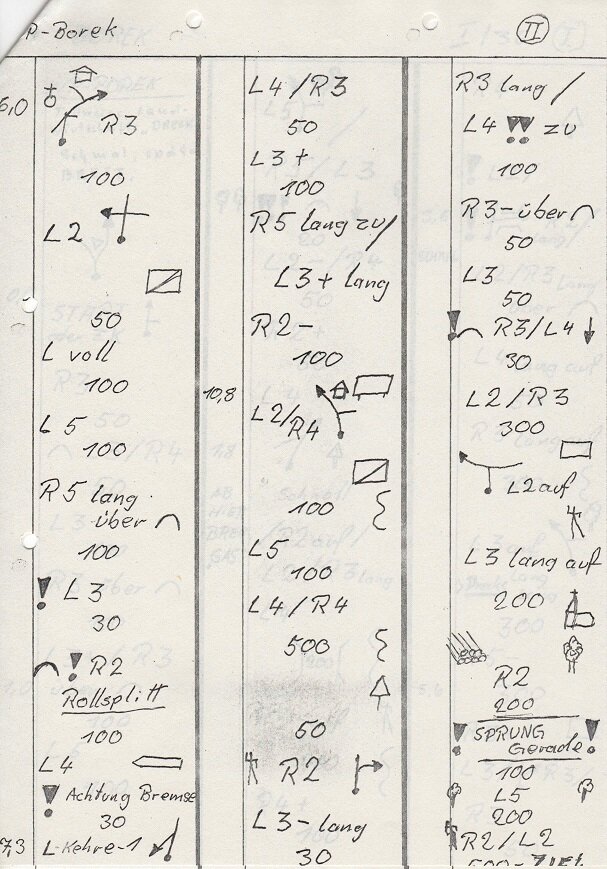 P-Borek
II
6,0
R3
100
L2
50
L voll
100
L5
100
R5 lang
über
100
! L3
30
! R2
Rollsplitt
100
L4
! Achtung Bremse
30
7,3
L-Kehre-1
L4/R3
50
L3+
100
R5 lang zu/
L3+ lang
R2-
100
10,8
L2/R4
100
L5
100
L4/R4
500
50
R2
L3-lang
30
R3 lang/
L4 !! zu
100
R3-über
50
L3
50
! R3/L4
30
L2/R3
300
L2 auf
L3 lang auf
200
R2
200
! SPRUNG !
Gerade
100
L5
200
R2/L2
500-ZIEL